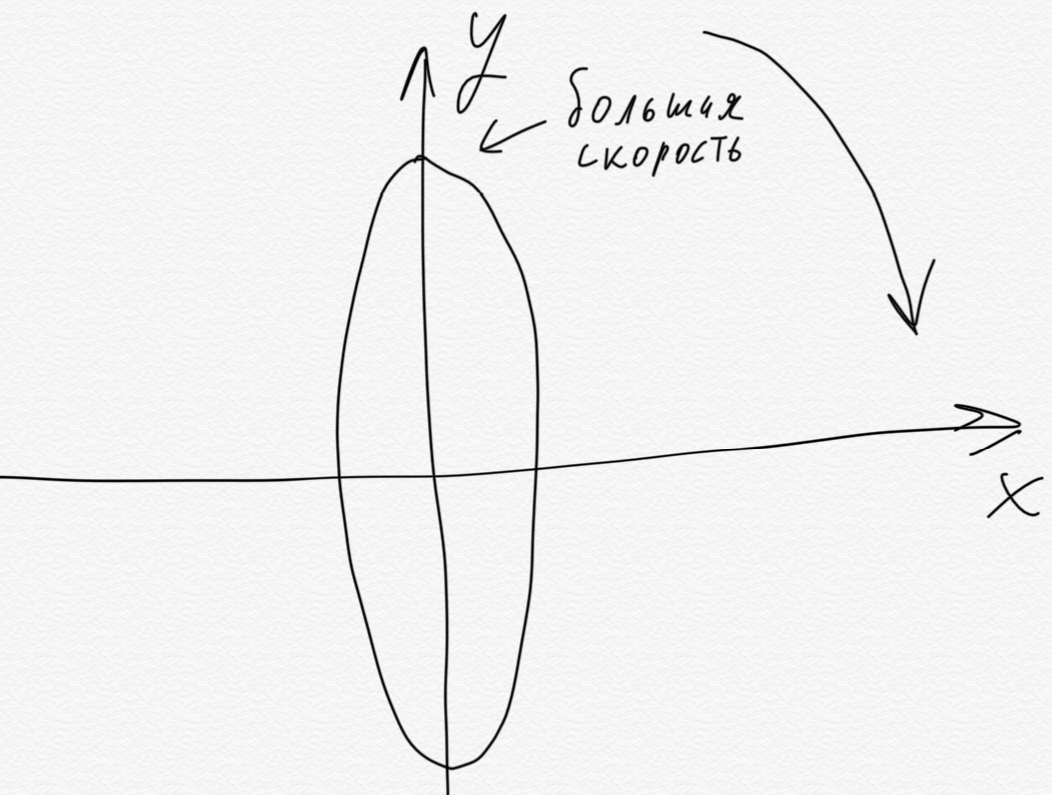 y
большая
скорость
x